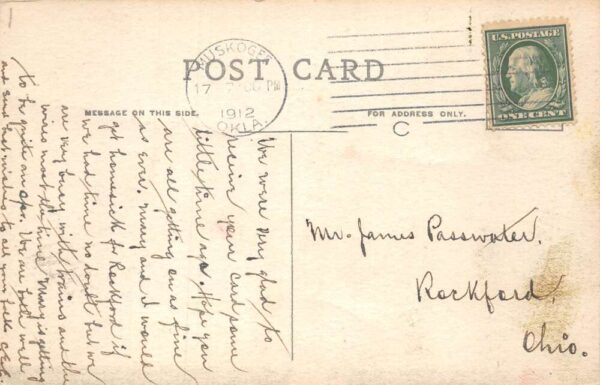 POST CARD
MUSKOGEE
17
PM
1912
OKLA.
U.S. POSTAGE
ONE CENT
MESSAGE ON THIS SIDE.
FOR ADDRESS ONLY.
C
We were very glad to
receive your card some
little time ago. Hope you
are all getting on as fine
as ever. Mary and I would
get homesick for Rockford if
we had time no doubt but we
are very busy with trains and the
wires most the time. Mary is getting
to be quite an opr. We are both well
and send best wishes to all your folks
Mr. James Passwater.
Rockford,
Ohio.